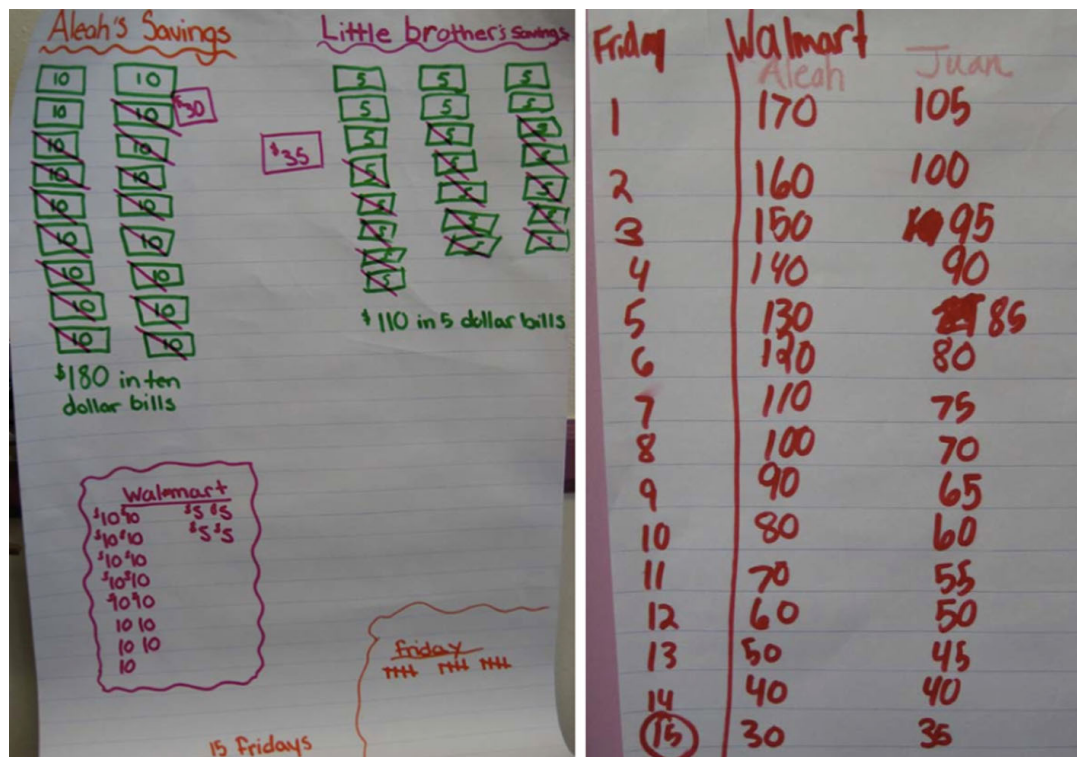 Aleah's Savings
10 10
10 10 $30
10 10
10 10
10 10
10 10
10 10
10 10
10 10
$180 in ten
dollar bills
Little brother's savings
5 5 5
5 5 5
5 5 5
$35
5 5 5
5 5 5
5 5 5
5 5 5
5
$110 in 5 dollar bills
Walmart
$10 $10 $5 $5
$10 $10 $5 $5
$10 $10
$10 $10
$10 $10
10 10
10 10
10
Friday
15 Fridays
Friday Walmart
Aleah Juan
1 170 105
2 160 100
3 150 95
4 140 90
5 130 85
6 120 80
7 110 75
8 100 70
9 90 65
10 80 60
11 70 55
12 60 50
13 50 45
14 40 40
15 30 35